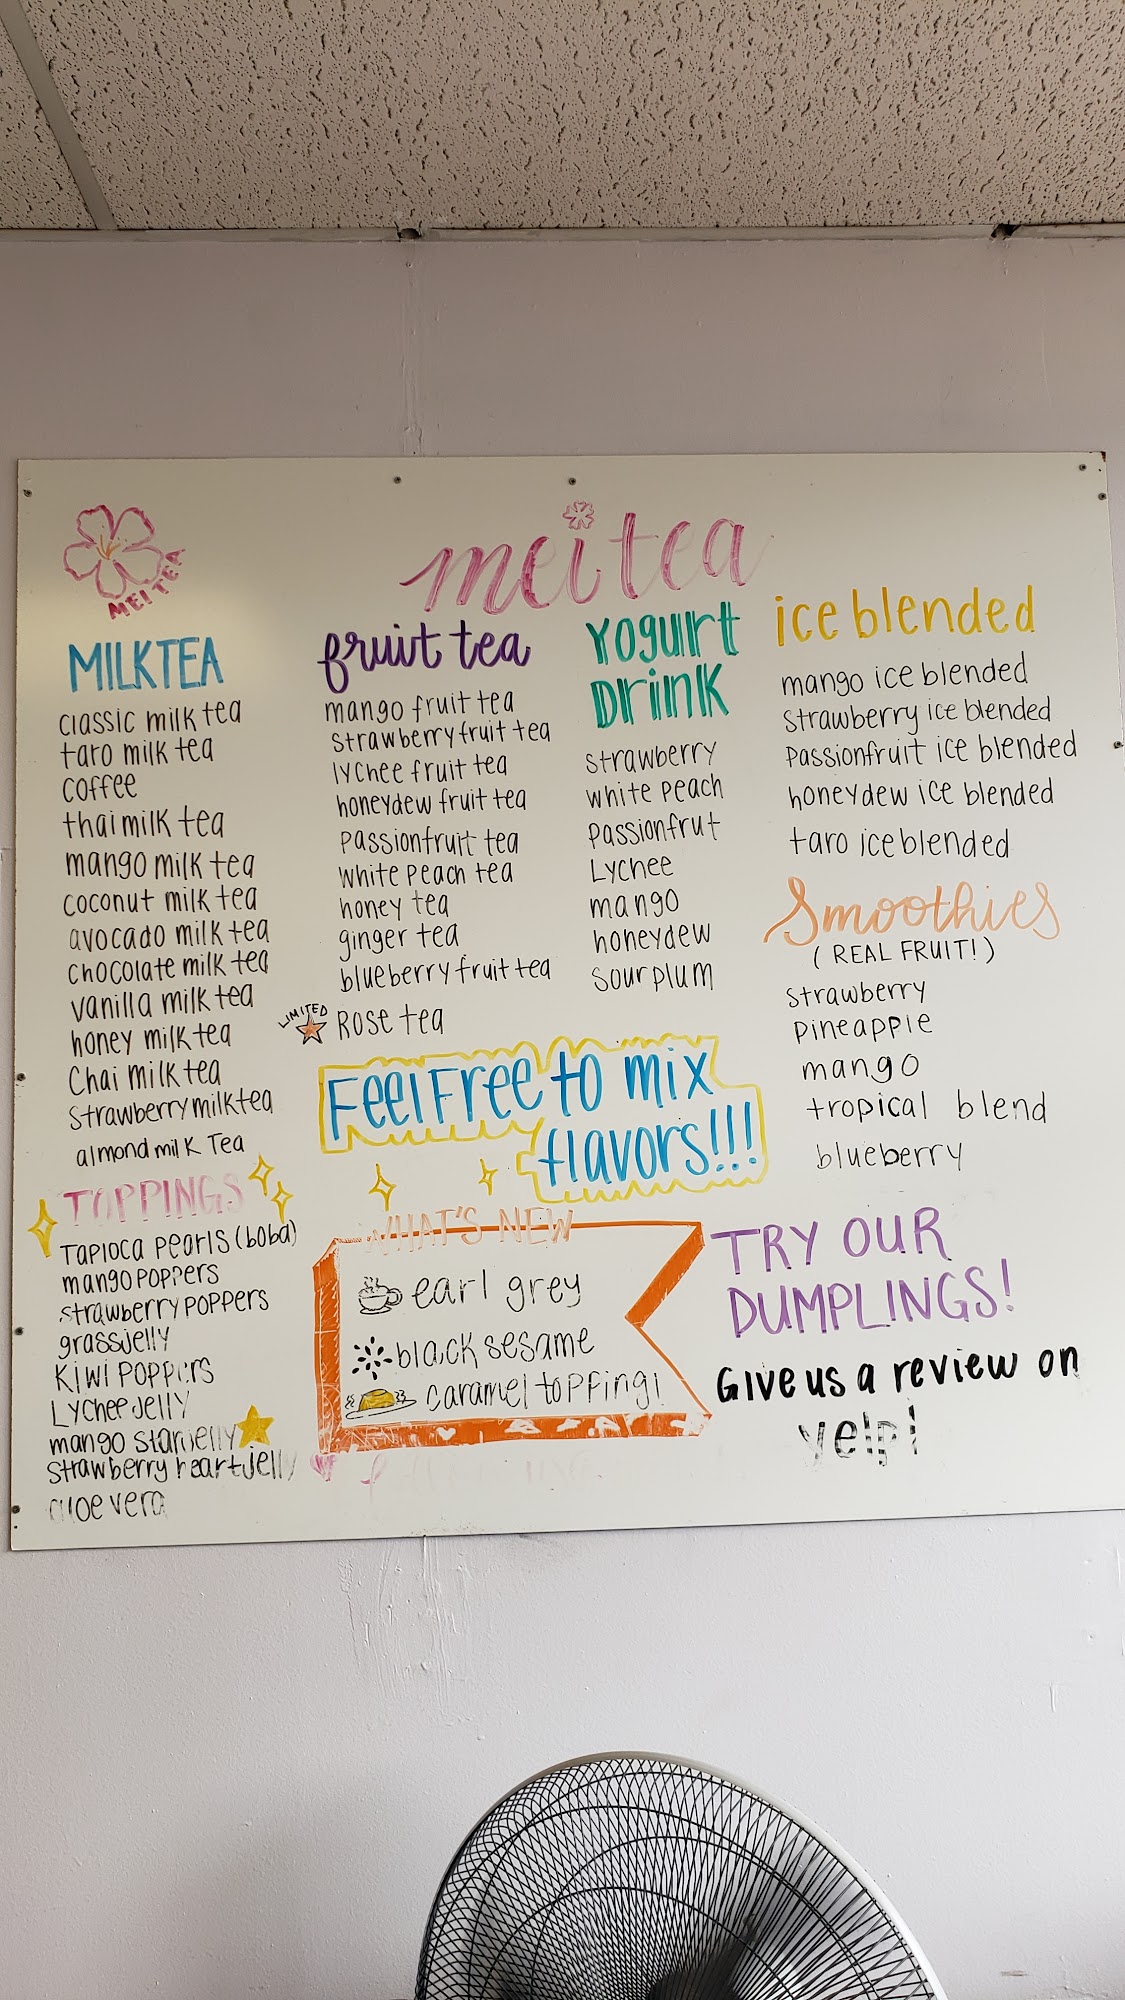 MEI TEA
mei tea
MILKTEA
classic milk tea
taro milk tea
coffee
thai milk tea
mango milk tea
coconut milk tea
avocado milk tea
chocolate milk tea
vanilla milk tea
honey milk tea
Chai milk tea
Strawberry milk tea
almond milk Tea
TOPPINGS
Tapioca pearls (boba)
mango poppers
strawberry poppers
grass jelly
Kiwi poppers
Lychee Jelly
mango star jelly
Strawberry heart jelly
aloe vera
fruit tea
mango fruit tea
strawberry fruit tea
lychee fruit tea
honeydew fruit tea
passionfruit tea
white peach tea
honey tea
ginger tea
blueberry fruit tea
LIMITED
Rose tea
Yogurt
Drink
strawberry
white peach
passionfrut
Lychee
mango
honeydew
sour plum
ice blended
mango ice blended
strawberry ice blended
passionfruit ice blended
honeydew ice blended
taro ice blended
Smoothies
(REAL FRUIT!)
strawberry
pineapple
mango
tropical blend
blueberry
Feel Free to mix
flavors!!!
WHAT'S NEW
earl grey
black sesame
caramel topping!
TRY OUR
DUMPLINGS!
Give us a review on
yelp!